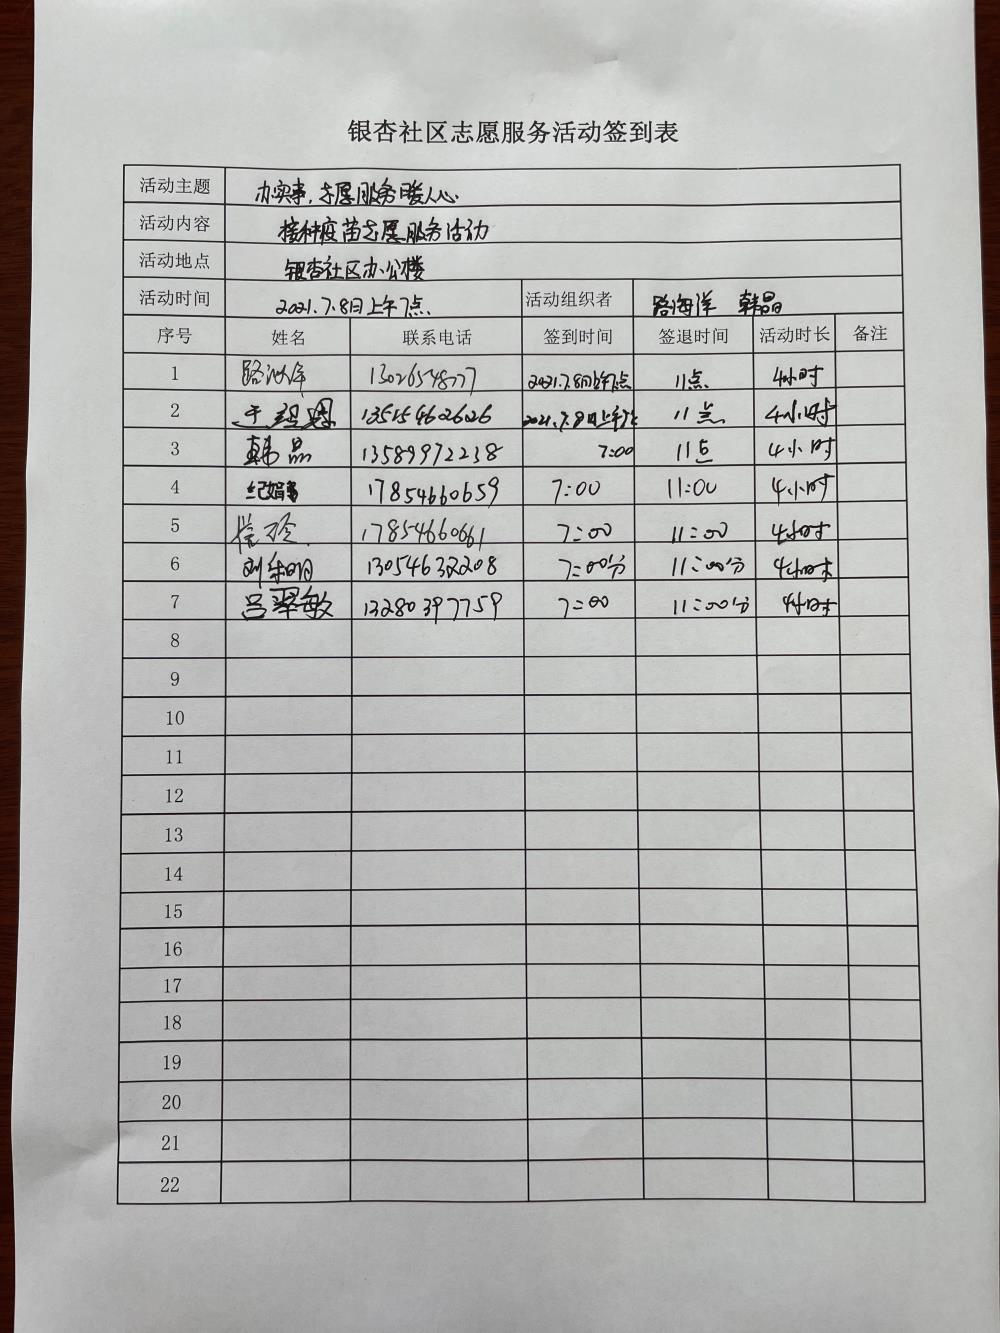 银杏社区志愿服务活动签到表
活动主题 办实事,志愿服务暖人心
活动内容 接种疫苗志愿服务活动
活动地点 银杏社区办公楼
活动时间 2021.7.8日上午7点. 活动组织者 路海洋 韩晶
序号 姓名 联系电话 签到时间 签退时间 活动时长 备注
1 路海洋 13026548777 2021.7.8日上午7点 11点. 4小时
2 13515462626 2021.7.8日上午7点 11点 4小时
3 韩晶 13589972238 7:00 11点 4小时
4 17854660659 7:00 11:00 4小时
5 17854660661 7:00 11:00 4小时
6 13054632208 7:00分 11:00分 4小时
7 吕翠敏 13280397759 7:00 11:00分 4小时
8
9
10
11
12
13
14
15
16
17
18
19
20
21
22